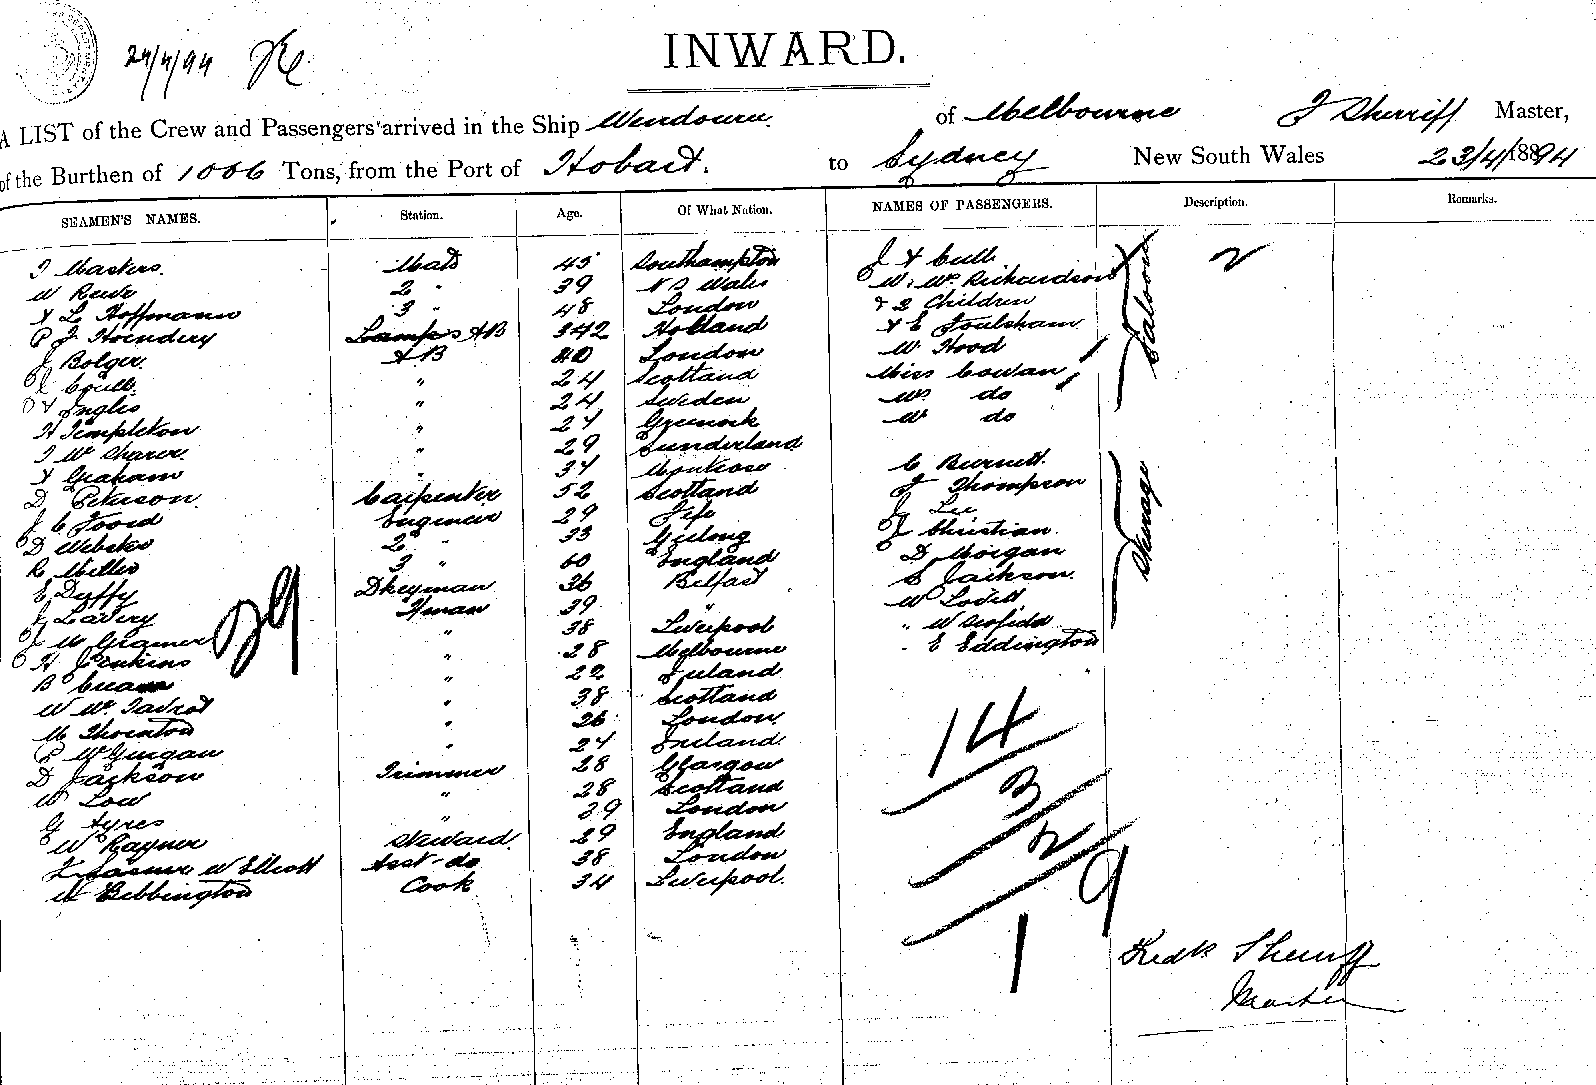 24/4/94
INWARD.
A LIST of the Crew and Passengers arrived in the Ship Wendouree of Melbourne F Sherriff Master,
of the Burthen of 1066 Tons, from the Port of Hobart. to Sydney New South Wales 23/4/1894
SEAMEN'S NAMES. Station. Age. Of What Nation. NAMES OF PASSENGERS. Description. Remarks.
Masters. Mate 45 Southampton J A Cull 2
W 2 " 39 N S Wales W. Richardson
A L Hoffmann 3 " 48 London & 2 Children
P J Hoendery Lamps AB 42 Holland A E Foulsham
J Bolger. AB 40 London W Hood Saloon
J Coull " 24 Scotland Miss Cowan
A Inglis " 24 Sweden do
H Templeton " 24 Greenock do
J W Sharer " 29 Sunderland
A Graham " 34 Montrose C Burnett.
D Peterson Carpenter 52 Scotland F Thompson
J C Foord Engineer 29 Fife J Lee
D Webster 2 " 33 Geelong J Christian Steerage
R Miller 3 " 60 England D Morgan
E Duffy Dkeyman 36 Belfast S Jackson.
J Lavery Fman 39 " W Lovell
J M " 38 Liverpool " W
H Jenkins " 28 Melbourne " E Eddington
B " 22 Ireland
W " 38 Scotland
M Thornton " 26 London
P McGuigan " 24 Ireland.
D Jackson Trimmer 28 Glasgow
W Low " 28 Scotland
G Ayres " 39 London
W Rayner Steward 29 England
W Elliott Asst do 38 London
Bebbington Cook 34 Liverpool.
29
14
3
2
9
1
Fredk Sherriff
Master